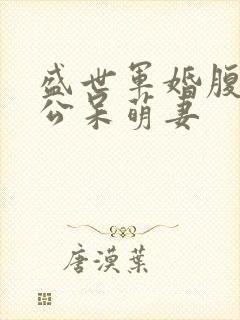 盛世军婚腹
公呆萌妻
唐漠葉